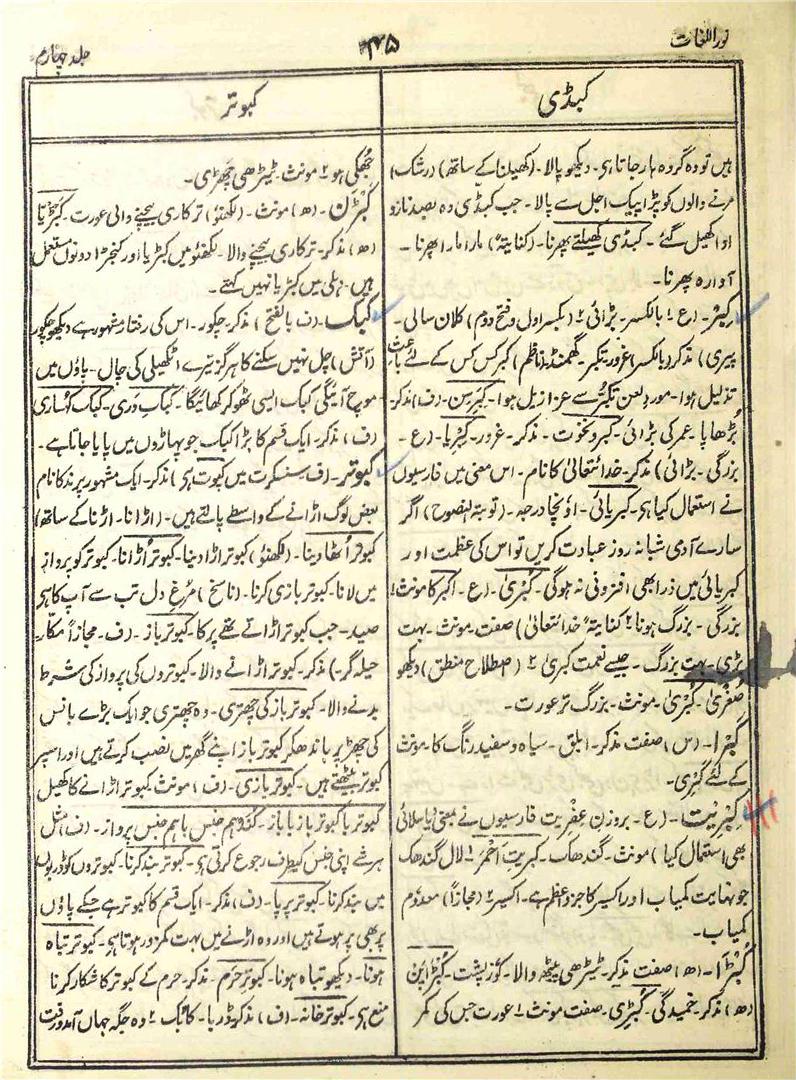 نور اللغات
۴۵
جلد چہارم
کبڈی
ہیں تو وہ گروہ ہار جاتا ہی۔ دیکھو پالا۔ (کھیلنا کے ساتھ) (رشک)
مرنے والوں کو پڑا پیک اجل سے پالا۔ جب کبڈی وہ بصد ناز و
ادا کھیل گئے۔ کبڈی کھیلتے پھرنا۔ (کنایتہً) مارا مارا پھرنا۔
آوارہ پھرنا۔
کِبَر۔ (ع) ۱ بالکسر۔ بڑائی ۲ (بکسر اول و فتح دوم) کلان سالی۔
پیری) مذکر (بالکسر) غرور۔ تکبر۔ گھمنڈ (ناظم) کبر کس کس کے لئے باعث
تذلیل ہوا۔ مورد لعن تکبّر سے عزازیل ہوا۔ کبرسن۔ (ف) مذکر۔
بُڑھاپا۔ عمر کی بڑائی۔ کبر و نخوت۔ مذکر۔ غرور۔ کبریا۔ (ع۔
بزرگی۔ بڑائی) مذکر۔ خدا تعالیٰ کا نام۔ اس معنی میں فارسیوں
نے استعمال کیا ہی۔ کبریائی۔ اونچا درجہ۔ (توبتہ النصوح) اگر
سارے آدمی شبانہ روز عبادت کریں تو اس کی عظمت اور
کبریائی میں ذرا بھی افزونی نہ ہوگی۔ کُبریٰ۔ (ع۔ اکبر کا مونث ۱
بزرگی۔ بزرگ ہونا ۲ کنایتہً خدا تعالیٰ) صفت۔ مونث۔ بہت
بڑی۔ بہت بزرگ۔ جیسے نعمت کبریٰ ۲ (اصطلاح منطق) دیکھو
صُغریٰ۔ کُبریٰ۔ مونث۔ بزرگ تر عورت۔
کَبرا۔ (س) صفت مذکر۔ ابلق۔ سیاہ و سفید رنگ کا۔ مونث
کے لئے کبری۔
کِبریت۔ (ع۔ بروزن عِفریت فارسیوں نے بمعنی دیا سلائی
بھی استعمال کیا) مونث۔ گندھک۔ کبریت احمر ۱۔ لال گندھک
جو نہایت کمیاب اور اکسیر کا جزو اعظم ہے۔ اکسیر ۲ (مجازاً) معدوم
کمیاب۔
کُبڑا۔ (ھ) صفت مذکر۔ ٹیڑھی پیٹھ والا۔ کوزپشت۔ کُبڑاپن
(ھ) مذکر۔ خمیدگی۔ کُبڑی۔ صفت مونث ۱۔ عورت جس کی کمر
کبوتر
جُھکی ہو ۲ مونث۔ ٹیڑھی چھڑی۔
کَبڑَن۔ (ھ) مونث۔ (لکھنؤ) ترکاری بیچنے والی عورت۔ کبڑیا
(ھ) مذکر۔ ترکاری بیچنے والا۔ لکھنؤ میں کبڑیا اور کنجڑا دونوں مستعمل
ہیں۔ دہلی میں کبڑیا نہیں کہتے۔
کبک۔ (ف بالفتح) مذکر۔ چکور۔ اس کی رفتار مشہور ہے دیکھو چکور
(آتش) چل نہیں سکنے کا ہرگز تیرے اٹکھیلی کی چال۔ پاؤں میں
موچ آئیگی کبک ایسی ٹھوکر کھائیگا۔ کبک دری۔ کبک کہساری
(ف) مذکر۔ ایک قسم کا بڑا کبک جو پہاڑوں میں پایا جاتا ہے۔
کبوتر۔ (ف سنسکرت میں کپوت ہی) مذکر۔ ایک مشہور پرند کا نام
بعض لوگ اڑانے کے واسطے پالتے ہیں۔ (اڑانا۔ اڑنا کے ساتھ)
کبوتر اُٹھا دینا۔ (لکھنؤ) کبوتر اڑا دینا۔ کبوتر اُڑانا۔ کبوتر کو پرواز
میں لانا۔ کبوتر بازی کرنا۔ (ناسخ) مرغ دل تب سے آپ کا ہی
صید۔ جب کبوتر اڑاتے تھے پرکا۔ کبوتر باز۔ (ف۔ مجازاً مکّار۔
حیلہ گر۔) مذکر۔ کبوتر اڑانے والا۔ کبوتروں کی پرواز کی شرط
بدنے والا۔ کبوتر باز کی چھتری۔ وہ چھتری جو ایک بڑے بانس
کی چھڑ پر باندھکر کبوتر باز اپنے گھر میں نصب کرتے ہیں اور اسپر
کبوتر بیٹھتے ہیں۔ کبوتر بازی۔ (ف) مونث۔ کبوتر اڑانے کا کھیل
کبوتر با کبوتر باز با باز۔ کند ہم جنس با ہم جنس پرواز۔ (ف) مثل
ہر شے اپنی جنس کیطرف رجوع کرتی ہی۔ کبوتر بند کرنا۔ کبوتروں کو ڈربوں
میں بند کرنا۔ کبوتر پرپا۔ (ف) مذکر۔ ایک قسم کا کبوتر ہے جسکے پاؤں
پر بھی پر ہوتے ہیں اور وہ اڑنے میں بہت کمزور ہوتا ہی۔ کبوتر تباہ
ہونا۔ دیکھو تباہ ہونا۔ کبوتر حرم۔ مذکر۔ حرم کے کبوتر کا شکار کرنا
منع ہی۔ کبوتر خانہ۔ (ف) مذکر۔ ڈربا۔ کابک ۲ وہ جگہ جہاں آمد و رفت